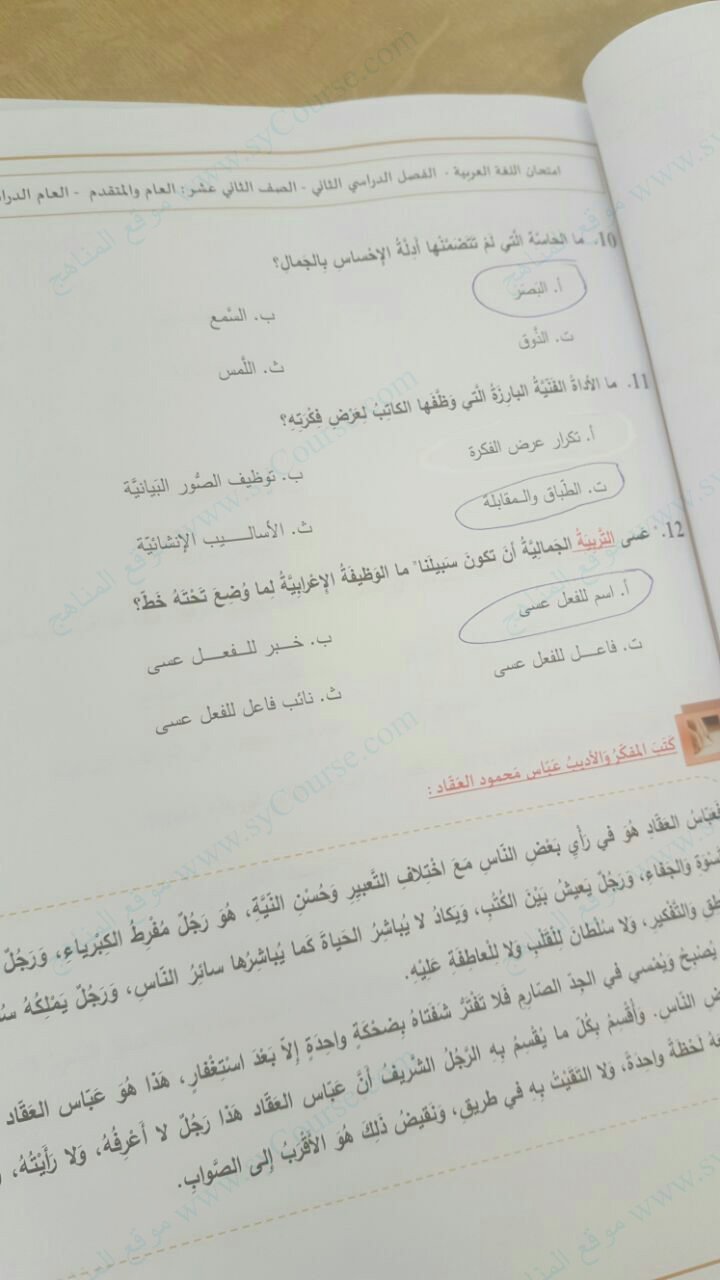 امتحان اللغة العربية - الفصل الدراسي الثاني - الصف الثاني عشر: العام والمتقدم - العام الدرا
10. ما الحَاسّة الَّتي لَمْ تَتَضَمَّنْها أَدِلَّةُ الإِحْساسِ بِالجَمالِ؟
أ. البَصَرَ
ب. السَّمع
ت. الذَّوق
ث. اللَّمس
11. ما الأداةُ الفَنِّيَّةُ البارِزَةُ الَّتي وَظَّفَها الكاتِبُ لِعَرْضِ فِكْرَتِهِ؟
أ. تكرار عرض الفكرة
ب. توظيف الصُّور البَيانيَّة
ت. الطّباق والـمقابلة
ث. الأساليـــب الإنشائيّة
12. "عَسى التَّربِيَةُ الجَمالِيَّةُ أنْ تَكونَ سَبيلَنا" ما الوَظيفَةُ الإِعْرابِيَّةُ لِما وُضِعَ تَحْتَهُ خَطّ؟
أ. اسم للفعل عسى
ب. خـــبر للـــفعـــل عسى
ت. فاعـــل للفعل عسى
ث. نائب فاعل للفعل عسى
كَتَبَ المفكّرُ وَالأديبُ عَبّاس مَحمود العَقّاد :
فَعَبّاسُ العَقّاد هُوَ في رَأْيِ بَعْضِ النّاسِ مَعَ اخْتِلافِ التَّعبيرِ وَحُسْنِ النّيَّةِ، هُوَ رَجُلٌ مُفْرِطُ الكِبْرِياءِ، وَرَجُلٌ
سْوَةِ وَالجَفاءِ، وَرَجُلٌ يَعيشُ بَيْنَ الكُتُبِ، وَيَكادُ لا يُباشِرُ الحَياةَ كَما يُباشِرُها سائِرُ النّاسِ، وَرَجُلٌ يَمْلِكُهُ سُ
طقِ وَالتَّفْكيرِ، وَلا سُلْطانَ لِلْقَلْبِ وَلا لِلْعاطِفَةِ عَلَيْهِ.
يُصْبِحُ وَيُمْسي في الجِدِّ الصّارِمِ فَلا تَفْتَرُّ شَفَتاهُ بِضَحْكَةٍ واحِدَةٍ إِلاّ بَعْدَ اسْتِغْفارٍ، هَذا هُوَ عَبّاس العَقّاد
ضِ النّاسِ. وَأُقْسِمُ بِكُلّ ما يُقْسِمُ بِهِ الرَّجُلُ الشَّريفُ أَنَّ عَبّاس العَقّاد هَذا رَجُلٌ لا أَعْرِفُهُ، وَلا رَأَيْتُهُ،
هُ لَحْظَةً واحِدَةً، وَلا التَقَيْتُ بِهِ في طَريقٍ، وَنَقيضُ ذَلِكَ هُوَ الأَقْرَبُ إِلى الصَّوابِ.
موقع المناهج www.syCourse.com